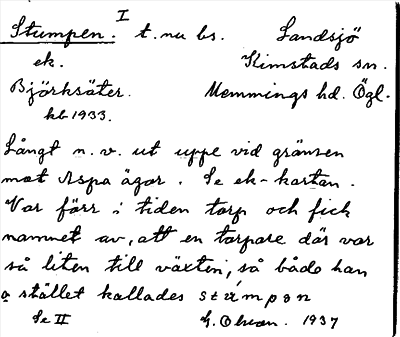 I
Stumpen. t. nu bs. Landsjö
ek. Kimstads sn.
Björksäter. Memmings hd. Ögl.
kb 1933.
Långt n. v. ut uppe vid gränsen
mot Aspa ägor. Se ek-kartan.
Var förr i tiden torp och fick
namnet av, att en torpare där var
så liten till växten, så både han
o stället kallades stúmpən
Se II G. Olsson. 1937